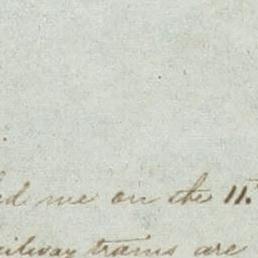 me on the 11.
railway trains are